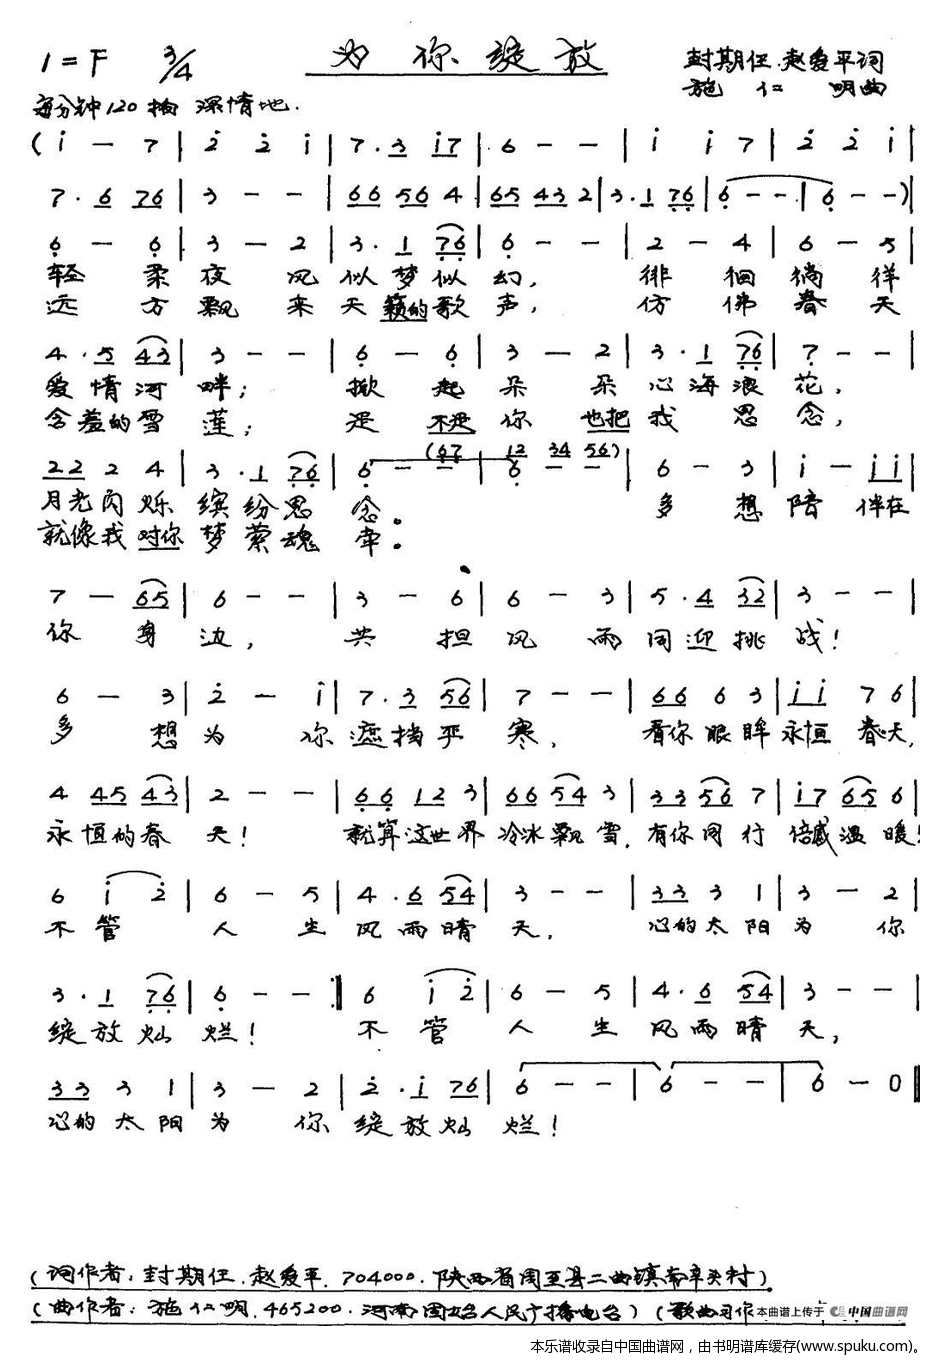 为你绽放
1=F 3/4
封期任.赵爱平词
施仁明曲
每分钟120拍 深情地.
(i — 7 | 2 2 i | 7.3 i7 | 6 - - | i i 7 | 2 2 i |
7.6 76 | 3 - - | 66 56 4 | 65 43 2 | 3.1 76 | 6 - - | 6 - -) |
6 — 6 | 3 — 2 | 3.1 76 | 6 - - | 2 — 4 | 6 — 5
轻柔夜风似梦似幻, 徘徊徜徉
远方飘来天籁的歌声, 仿佛春天
4.5 43 | 3 - - | 6 — 6 | 3 — 2 | 3.1 76 | 7 - - |
爱情河畔; 掀起朵朵心海浪花,
含羞的雪莲; 是不是你也把我思念,
(67 12 34 56)
22 2 4 | 3.1 76 | 6 - - | 6 - - | 6 - 3 | i — ii |
月光闪烁缤纷思念。 多想陪伴在
就像我对你梦萦魂牵。
7 — 65 | 6 - - | 3 — 6 | 6 — 3 | 5.4 32 | 3 - - |
你身边, 共担风雨同迎挑战!
6 — 3 | 2 — i | 7.3 56 | 7 - - | 66 6 3 | ii 7 6 |
多想为你遮挡严寒, 看你眼眸永恒春天,
4 45 43 | 2 - - | 66 12 3 | 66 54 3 | 33 56 7 | i7 65 6 |
永恒的春天! 就算这世界冷冰飘雪,有你同行倍感温暖!
6 i 2 | 6 — 5 | 4.6 54 | 3 - - | 33 3 1 | 3 — 2 |
不管人生风雨晴天, 心的太阳为你
3.1 76 | 6 - - :| 6 i 2 | 6 — 5 | 4.6 54 | 3 - - |
绽放灿烂! 不管人生风雨晴天,
33 3 1 | 3 — 2 | 2.i 76 | 6 - - | 6 - - | 6 — 0 ||
心的太阳为你绽放灿烂!
(词作者:封期任.赵爱平.704000.陕西省周至县二曲镇南辛头村)
(曲作者:施仁明.465200.河南固始人民广播电台)(歌曲习作
本曲谱上传于 中国曲谱网
本乐谱收录自中国曲谱网，由书明谱库缓存(www.spuku.com)。